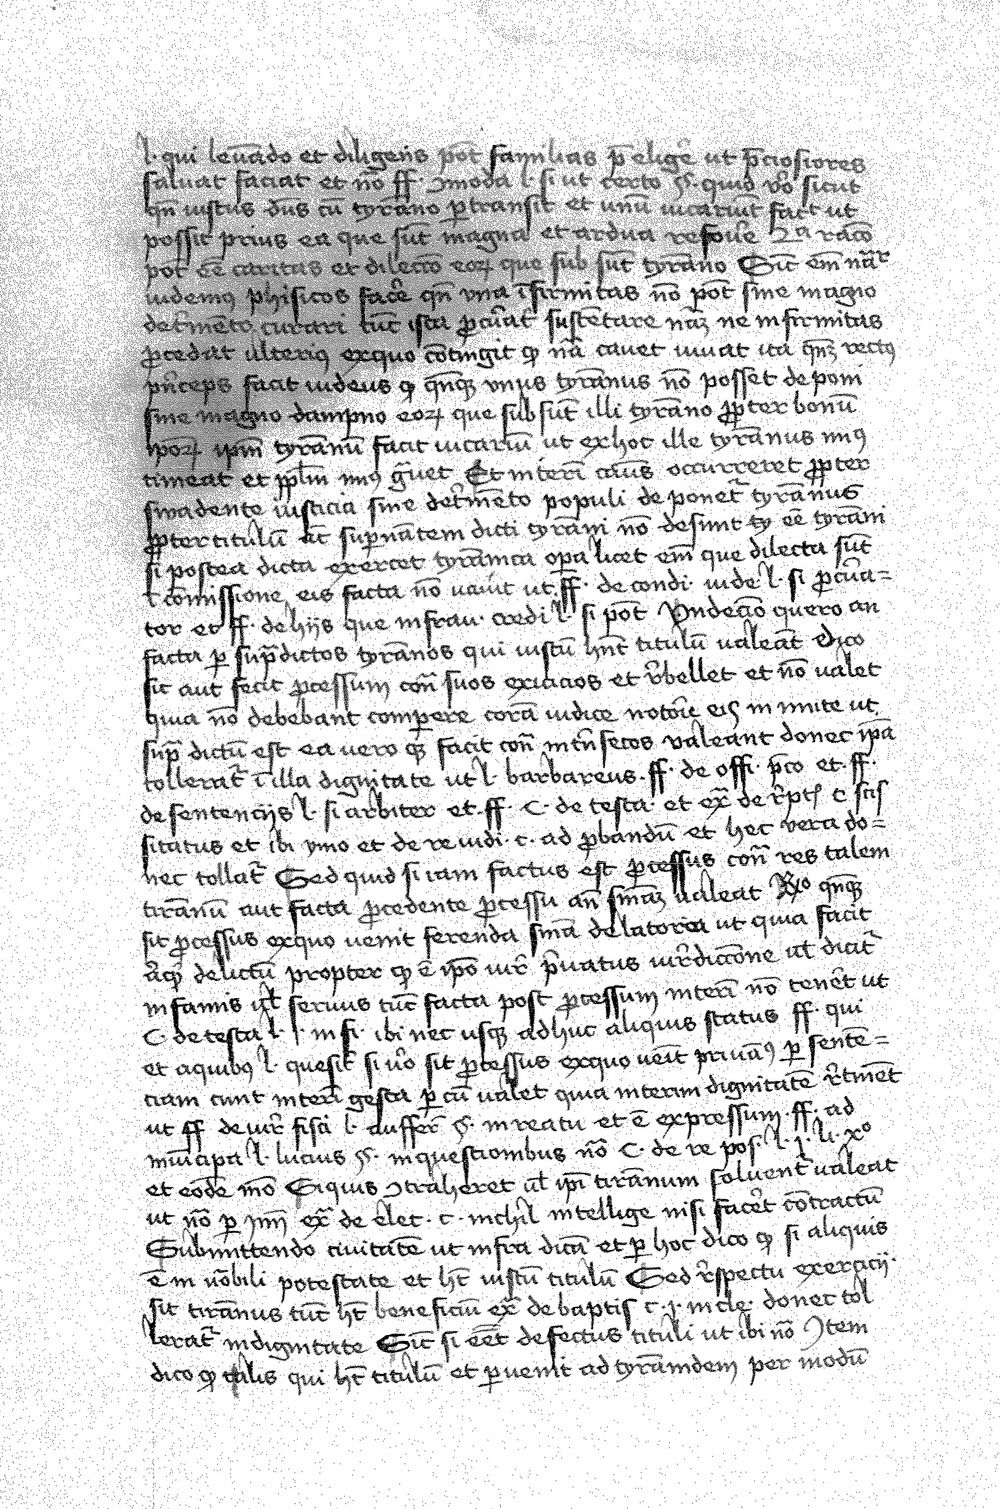 l. qui levādo et diligens pōt familias p̄ eliger̄ ut p̄ciosiores
saluat faciat et nō ff. ꝯmoda l. si ut certo §. quid v̊o sicut
qn̄ iustus dn̄s cū tyrāno ꝑtransit et unū uicariūt fact ut
possit prius ea que sūt magna et ardua refouē 2ᵃ racō
pōt eē caritas et dilectō eoꝝ que sub sūt tyrāno Sic̄ em̄ nāt
uidemꝰ phisicos facē qn̄ vna īfirmitas nō pōt sine magno
detīmēto curari tūc ista ꝓcūat sustētare nāꝫ ne infirmitas
ꝓcedat ulteriꝰ exquo cōtingit ꝙ nā cauet uiuat ita qn̄ꝫ rectꝰ
pn̄ceps facit uidens ꝙ qn̄qꝫ vniꝰ tyrānus nō posset deponi
sine magno dampno eoꝝ que sub sūt illi tyrāno ꝓpter bonū
ipoꝝ ipm̄ tyrānū facit uicariū ut ex hoc ille tyrānus minꝰ
timeat et pplm̄ minꝰ ḡuet Et interī caūs occurreret ꝓpter
suadente iusticia sine detīmēto populi deponet̄ tyrānus
ꝓpter titulū āt supnātem dicti tyrāni nō desint ty eē tyrāni
si postea dicta exercet tyrānica oꝑa licet em̄ que dilecta sūt
ī cōmissione eis facta nō ualūt ut ff. de condi. inde l. si ꝓcūa=
tor et ff. de hijs que in frau. credi l. si pōt Vndecīo quero an
facta ꝑ sup̄dictos tyrānos qui iustū hn̄t titulū ualeāt Dico
sit aut fecit ꝓcessum con̄ suos exicicios et r̄bellet et nō valet
quia nō debebant compere corā iudice notōie eis inimite ut
sup̄ dictū est ea uero qꝫ facit con̄ intn̄secos valeant donec ip̄a
tollerat̄ ī illa dignitate ut l. barbareus. ff. de offi. p̄co et. ff.
de sentencijs l. si arbiter et. ff. C. de testa. et ex̄ de r̄pt c scis
sitatus et ibi ymo et de re iudi. c. ad ꝓbandū et hec vera do=
nec tollat̄ Sed quid si iam factus est ꝓcessus con̄ res talem
tirānū aut facta ꝓcedente ꝓcessu an̄ sn̄iaꝫ ualeat Rͦ qn̄qꝫ
sit ꝓcessus exquo uenit ferenda sn̄ia delatoria ut quia facit
a̅qꝫ delictū propter ꝙ ē ipo iur̄ p̄uatus iur̄dicōne ul̄ dicit̄
infamis ul̄ seruus tūc facta post ꝓcessum interī nō tenēt ut
C. de testa l. j. in fi. ibi nec usqꝫ adhuc aliquis status ff. qui
et aquibꝰ l. quesit̄ si v̊o sit ꝓcessus exquo ueīt priuāꝰ ꝑ sentē=
ciam cunt interī gesta ꝑ cū ualet quia interim dignitatē r̄tinēt
ut ff de iur̄ fisci l. auffer̄ §. in reatu et ē expressum. ff. ad
mūicipa l. lucius §. inquestionibus nō C. de re pos. l. j. li. xͦ
et eodē mō Siquis ꝯtraheret ul̄ ip̄i tirānum soluent̄ ualeat
ut nō ꝑ ynn̄ ex̄ de elet. c. nichīl intellige nisi facēt cōtractū
Submittendo ciuitatē ut infra dicā et ꝑ hoc dico ꝙ si aliquis
ē in nōbili potestate et hēt iustū titulū Sed r̄spectu exercicij.
sit tirānus tūc hēt beneficiū ex̄ de baptis c. j. in cle. donec tol
lerat̄ in dignitate Sic̄ si eēt defectus tituli ut ibi nō Item
dico ꝙ talis qui hēt titulū et ꝑuenit ad tyrānidem per modū